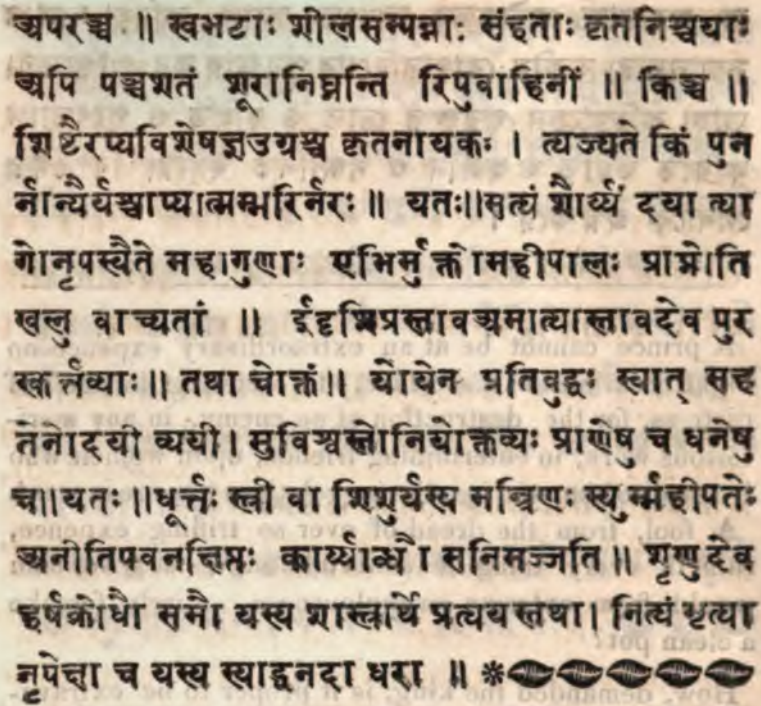 अपरञ्च ॥ स्वभटाः शीलसम्पन्नाः संहताः कृतनिश्चयाः
अपि पञ्चशतं शूरानिघ्नन्ति रिपुवाहिनीं ॥ किञ्च ॥
शिष्टैरप्यविशेषज्ञउग्रश्च कृतनायकः । त्यज्यते किं पुन
र्नान्यैर्यश्चाप्यात्मम्भरिर्नरः ॥ यतः॥सत्यं शौर्य्यं दया त्या
गोनृपस्यैते महागुणाः एभिर्मुक्तोमहीपालः प्राप्नोति
खलु वाच्यतां ॥ ईदृशिप्रस्तावअमात्यास्तावदेव पुर
स्कर्त्तव्याः॥ तथा चोक्तं॥ योयेन प्रतिबुद्धः स्यात् सह
तेनोदयी व्ययी। सुविश्वस्तोनियोक्तव्यः प्राणेषु च धनेषु
च॥यतः ॥धूर्त्तः स्त्री वा शिशुर्यस्य मन्त्रिणः स्युर्म्महीपतेः
अनीतिपवनक्षिप्तः कार्य्याब्धौ सनिमज्जति ॥ शृणु देव
हर्षक्रोधौ समौ यस्य शास्त्रार्थे प्रत्ययस्तथा। नित्यं भृत्या
नृपेक्षा च यस्य स्याद्धनदा धरा ॥ *